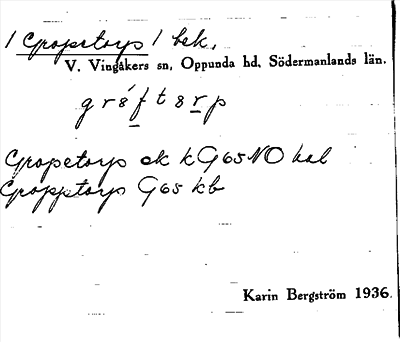 / Gropetorp / bek.
V. Vingåkers sn, Oppunda hd, Södermanlands län.
Gropetorp ek k G65NO bal
Gropptorp G65 kb
Karin Bergström 1936.